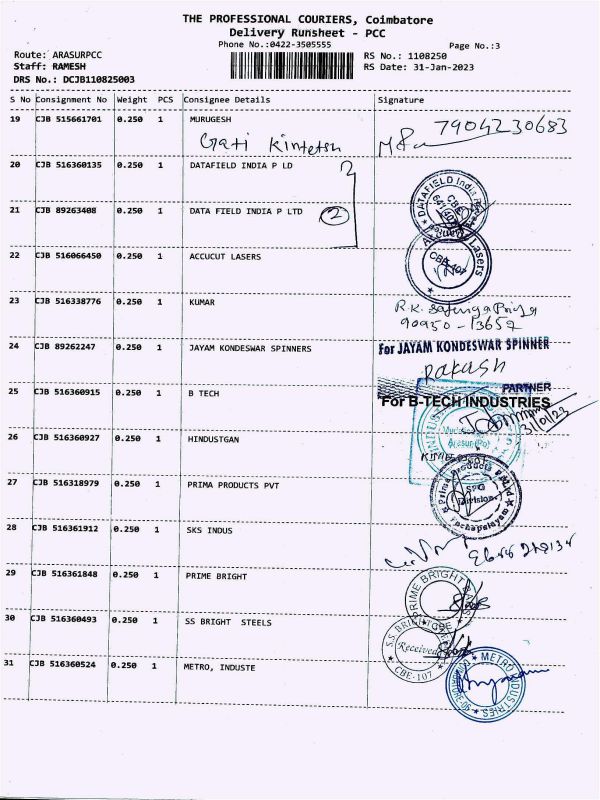 THE PROFESSIONAL COURIERS, Coimbatore
Delivery Runsheet - PCC
Phone No.:0422-3505555
Page No.:3
Route: ARASURPCC
RS No.: 1108250
Staff: RAMESH
RS Date: 31-Jan-2023
DRS No.: DCJB110825003
S No Consignment No Weight PCS Consignee Details Signature
19 CJB 515661701 0.250 1 MURUGESH
Gati Kintetsu 7904230683
20 CJB 516360135 0.250 1 DATAFIELD INDIA P LD
DATAFIELD India
21 CJB 89263408 0.250 1 DATA FIELD INDIA P LTD 2
22 CJB 516066450 0.250 1 ACCUCUT LASERS
Lasers
CBE-407
23 CJB 516338776 0.250 1 KUMAR
R.K.
90950-13652
24 CJB 89262247 0.250 1 JAYAM KONDESWAR SPINNERS
For JAYAM KONDESWAR SPINNER
PARTNER
25 CJB 516360915 0.250 1 B TECH
For B-TECH INDUSTRIES
31/01/23
26 CJB 516360927 0.250 1 HINDUSTGAN
Arasur(Po)
27 CJB 516318979 0.250 1 PRIMA PRODUCTS PVT
Prima Products Pvt Ltd
Division
28 CJB 516361912 0.250 1 SKS INDUS
29 CJB 516361848 0.250 1 PRIME BRIGHT
PRIME BRIGHT BARS
30 CJB 516360493 0.250 1 SS BRIGHT STEELS
S.S. BRIGHT
Received
CBE-107
31 CJB 516360524 0.250 1 METRO, INDUSTE
METRO INDUSTRIES